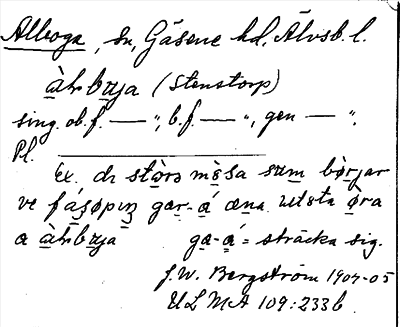 Alboga, sn, Gäsene hd, Älvsb. l.
àlbωja (Stenstorp)
sing. ob. f. — ", b. f. — ", gen — ",
Pl.
ex. dε stòrə mὲsa sωm bòrjar
ve fáʒøpıŋ gær-á æna utsta òra
a àlbωja gæ-á = sträcka sig.
J. W. Bergström 1904-05
ULMA 109:233b